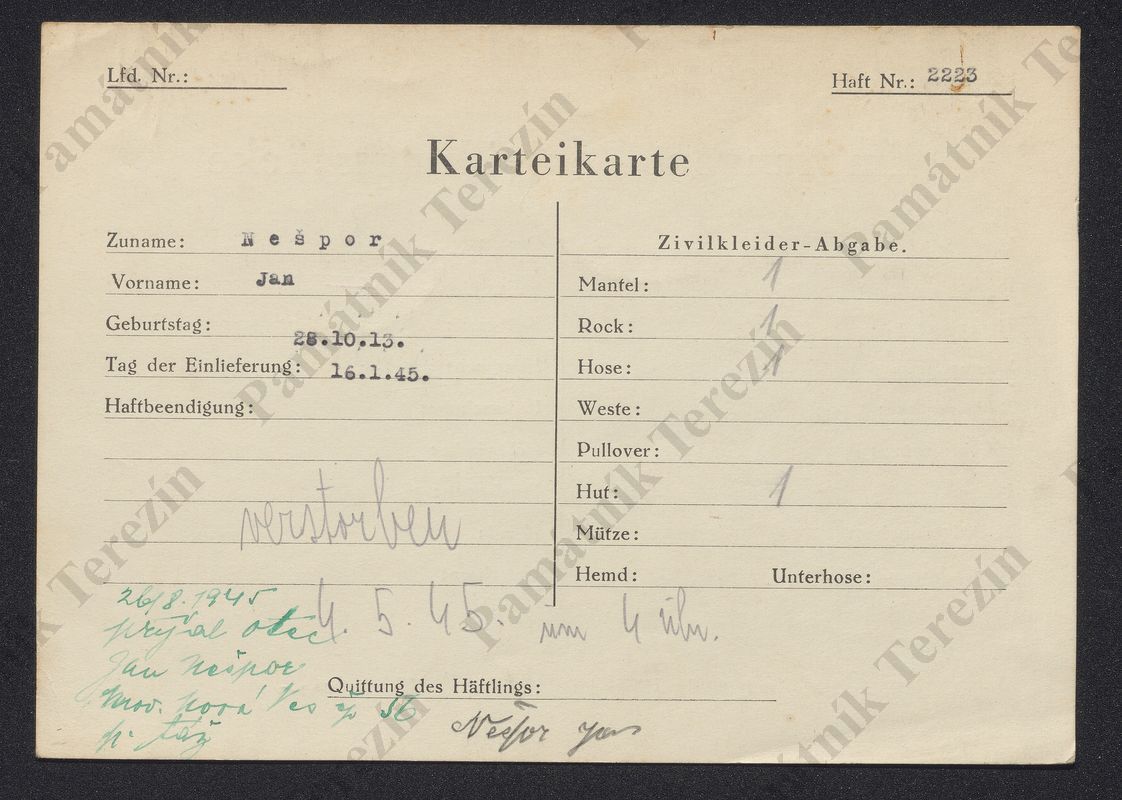 Lfd. Nr.:
Haft Nr.: 2223
Karteikarte
Zuname: Nešpor
Vorname: Jan
Geburtstag: 28.10.13.
Tag der Einlieferung: 16.1.45.
Haftbeendigung:
verstorben
4. 5. 45. um 4 Uhr.
Zivilkleider-Abgabe.
Mantel: 1
Rock: 1
Hose: 1
Weste:
Pullover:
Hut: 1
Mütze:
Hemd: Unterhose:
26/8. 1945
přijal otec
Jan Nešpor
Nová Ves čp 56
p.
Quittung des Häftlings:
Nešpor Jan
Památník Terezín
Památník Terezín
Památník Terezín
Památník Terezín
Památník Terezín